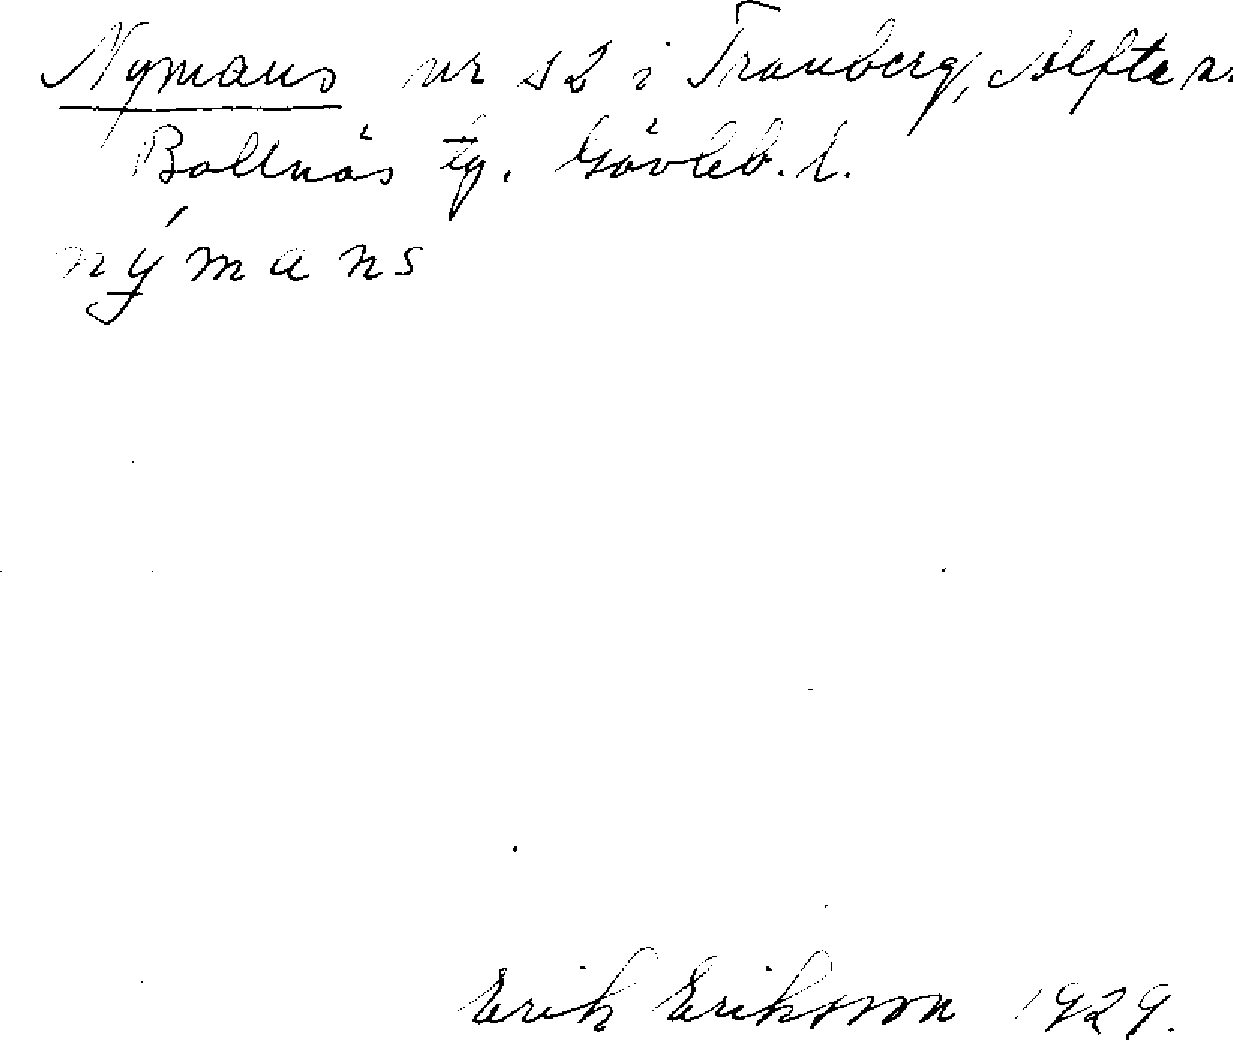 Nymans nr 12 i Tranberg, Alfta s.
Bollnäs tg. Gävleb. l.
nýmans
Erik Eriksson 1929.